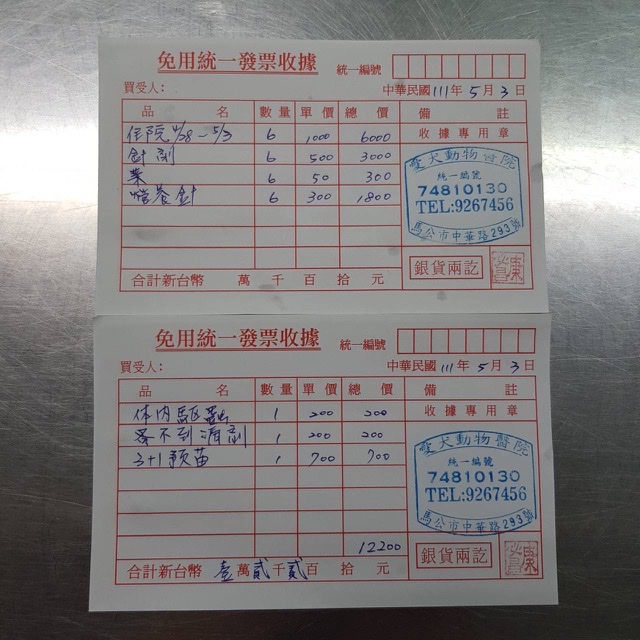 免用統一發票收據
統一編號
買受人：
中華民國111年5月3日
品名 數量 單價 總價 備註
住院4/28-5/3 6 1000 6000
收據專用章
針劑 6 500 3000
藥 6 50 300
營養針 6 300 1800
愛犬動物醫院
統一編號
74810130
TEL:9267456
馬公市中華路293號
合計新台幣 萬 千 百 拾 元
銀貨兩訖
免用統一發票收據
統一編號
買受人：
中華民國111年5月3日
品名 數量 單價 總價 備註
体内驅蟲 1 200 200
收據專用章
蚤不到滴劑 1 200 200
3+1預苗 1 700 700
愛犬動物醫院
統一編號
74810130
TEL:9267456
馬公市中華路293號
12200
合計新台幣 壹萬貳千貳百 拾 元
銀貨兩訖